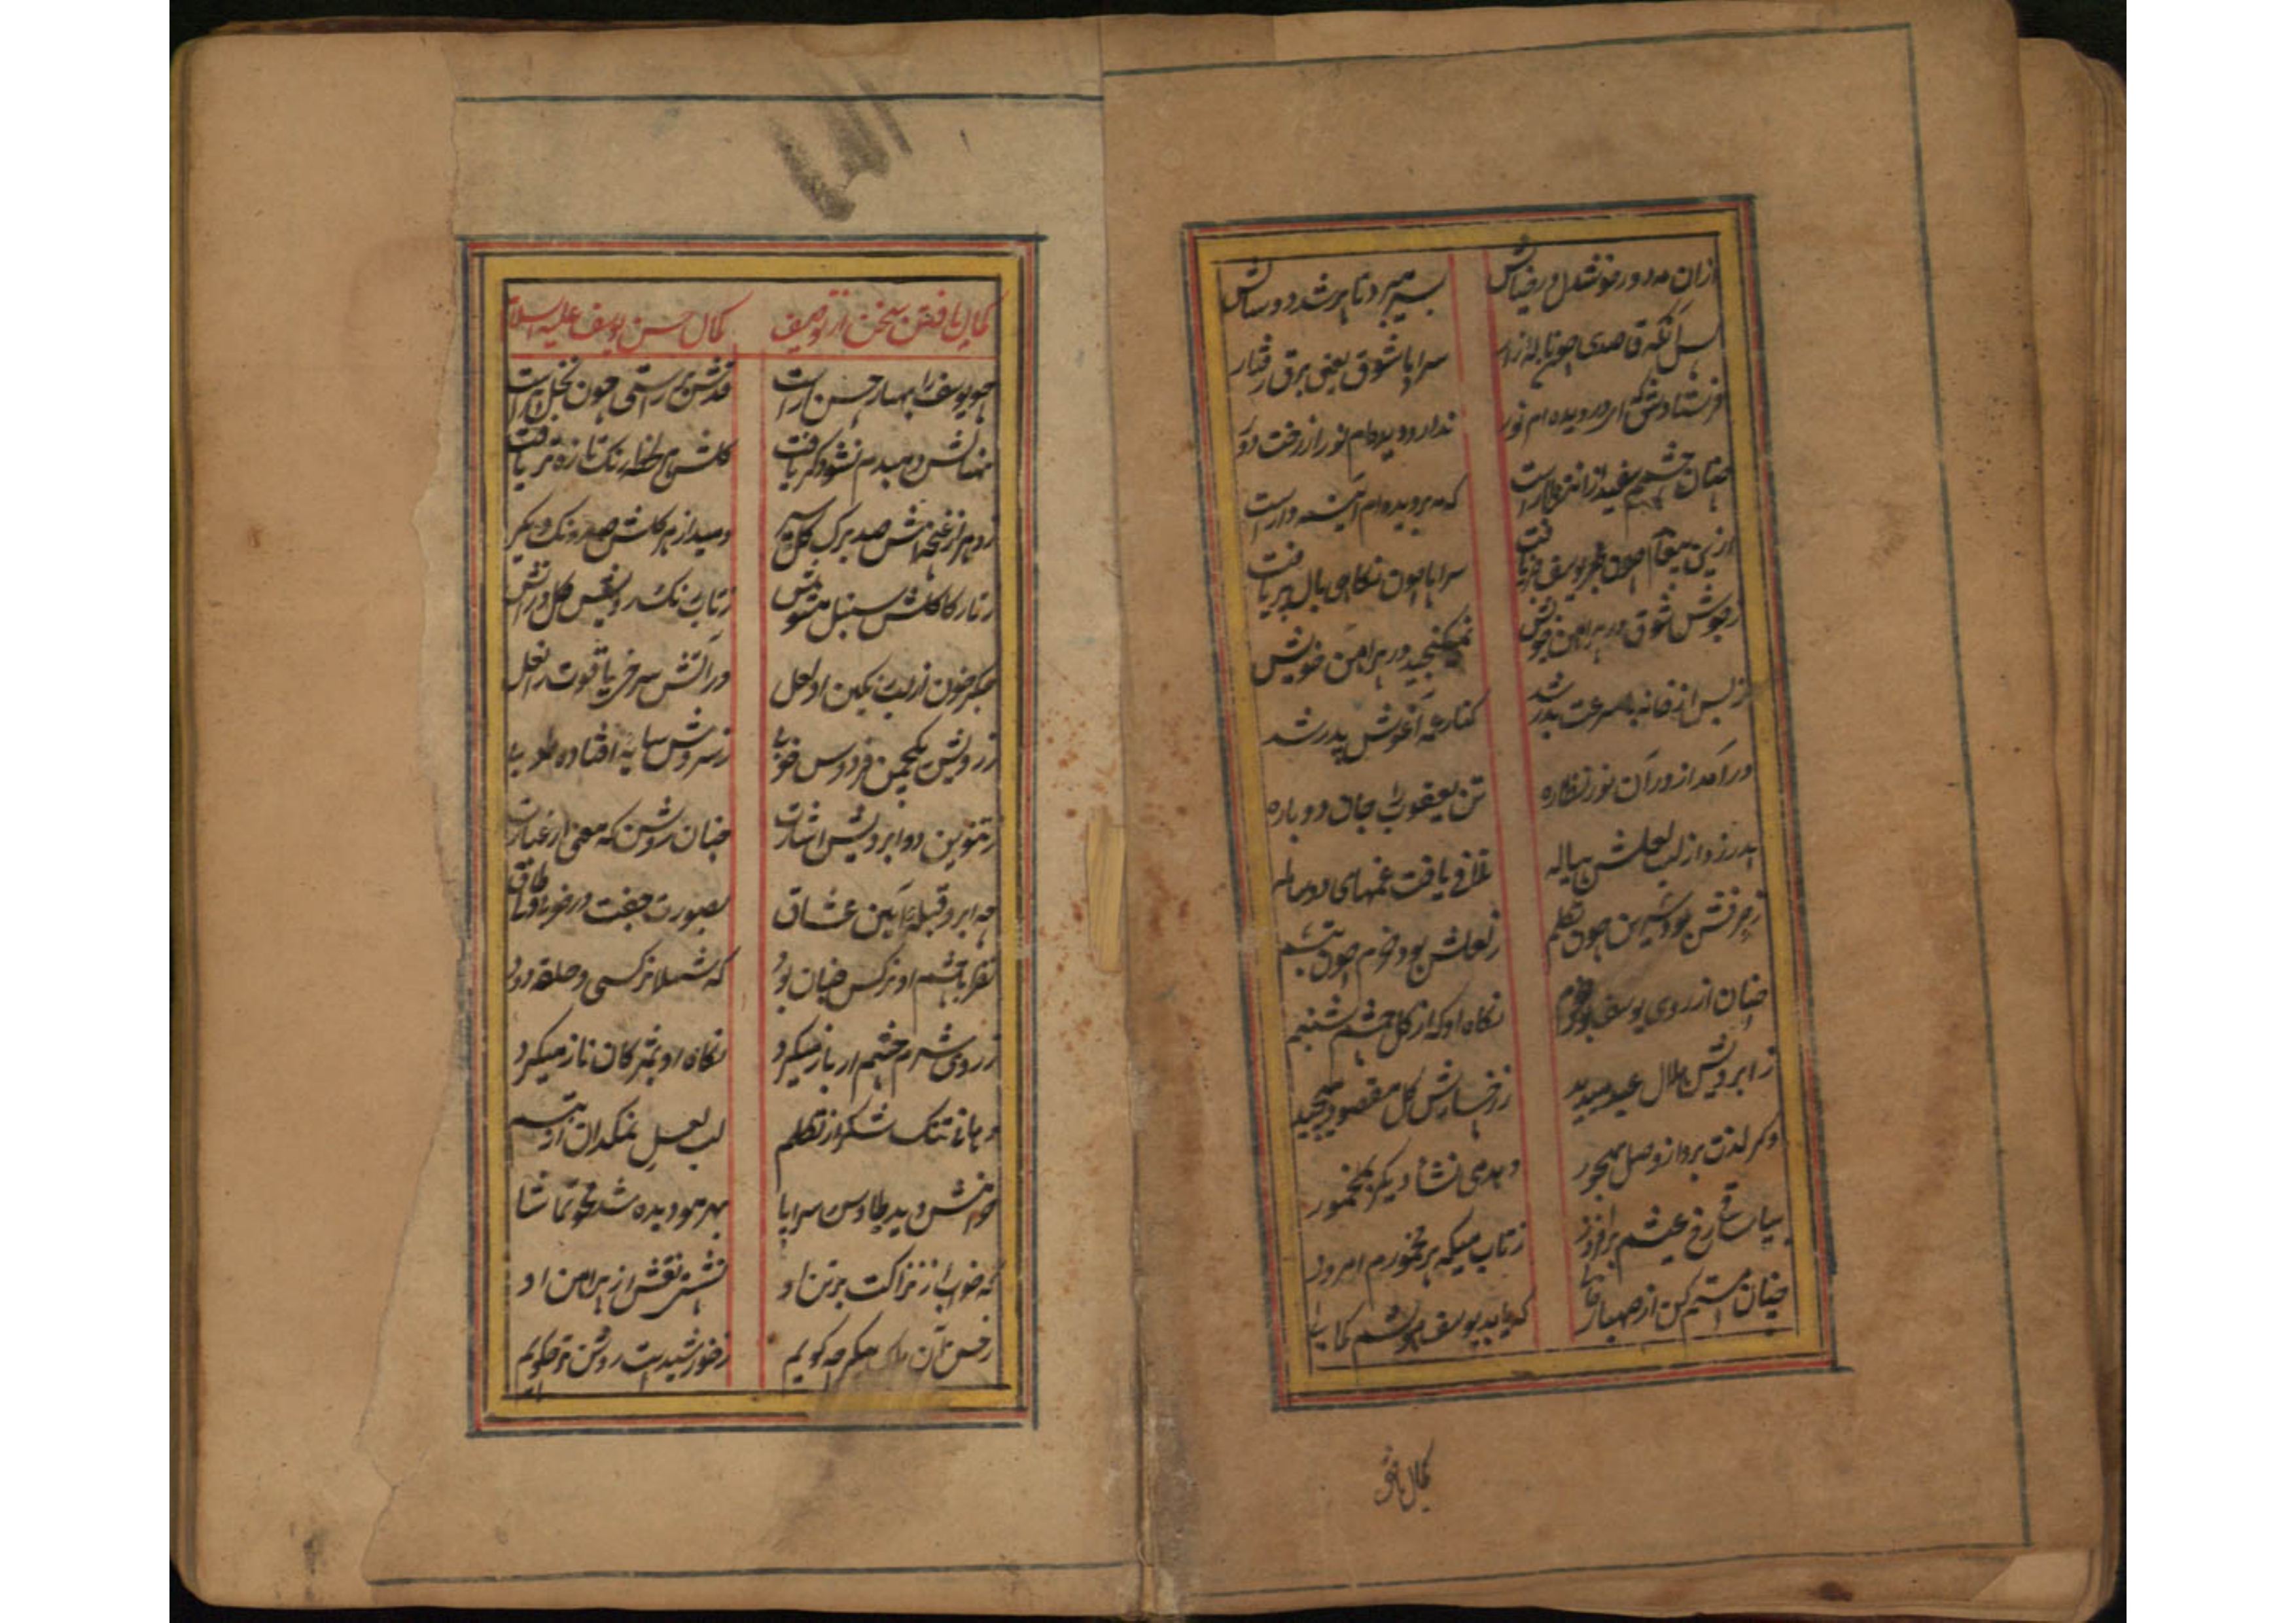 ازان مه دور خوشدل ور ضیاش بسر میبرد تا پر شد دو سالش
پس آنگه قاصدی چون ناله زار سراپا شوق یعنی برق رفتار
فرستادش که ای در دیده ام نور ندارد دیده ام نور از رخت دور
چنان چشمم سفید از انتظار است که مه بر دیده ام آئینه دار است
ازین پیغام چون یوسف خبر یافت سراپا چون نگاهی بال و پر یافت
ز جوش شوق در پیراهن خویش نمیگنجید در پیراهن خویش
ز بس از خانه با سرعت بدر شد کنار غم آغوش پدر شد
درآمد از در آن نور نظاره تن یعقوب را جان دوباره
پدر زد از لب لعلش پیاله تلافی یافت غمهای دوساله
ز حرفش بود شیرین چون تکلم ز لعلش بود خرم چون تبسم
چنان از روی یوسف بود خرم نگاه او که از گل چشم شبنم
ز ابرویش هلال عید میدید ز رخسارش گل مقصود میچید
دگر لذت برد از وصل مهجور دهد می نشاء دیگر بمخمور
بیا ساقی رخ عیشم برافروز ز تاب می که پر مخمورم امروز
چنان مستم کن از صهبای که یابد یوسف هوشم کمالی
کمال یافتن
کمال یافتن سخن از توصیف کمال حسن یوسف علیه السلام
چو یوسف را بهار حسن آراست قدش بر راستی چون نخل برخاست
نهالش دمبدم نشو دگر یافت گلش هر لحظه رنگ تازه تر یافت
زد هر از غنچه اش صد برگ گل سر دمید از هر گلش صد رنگ دیگر
ز تار کاکلش سنبل مشوش ز تاب رنگ رویش گل در آتش
جگر خون از لب رنگین او لعل در آتش سرخی یاقوت را نعل
ز رویش یکچمن فردوس خوبی ز سروش سایه افتاده طوبی
ز تنوین دو ابرویش اشارت چنان روشن که معنی از عبارت
چه ابرو قبله آئین عشاق بصورت جفت در خوبی ولی طاق
نظر با چشم او نرگس چنان بود که شهلا نرگسی در حلقه دود
ز روی شرم چشم ار باز میکرد نگاه او بمژگان ناز میکرد
دهانی تنگ شکر از تکلم لب لعلی نمکدان از تبسم
خرامش دید طاوس سراپا بهر مو دیده شد محو تماشا
گه خواب از نزاکت بر تن او نشستی نقش از پیراهن او
ز حسن آن ملک پیکر چه گویم ز خورشید است روشن تر چگویم